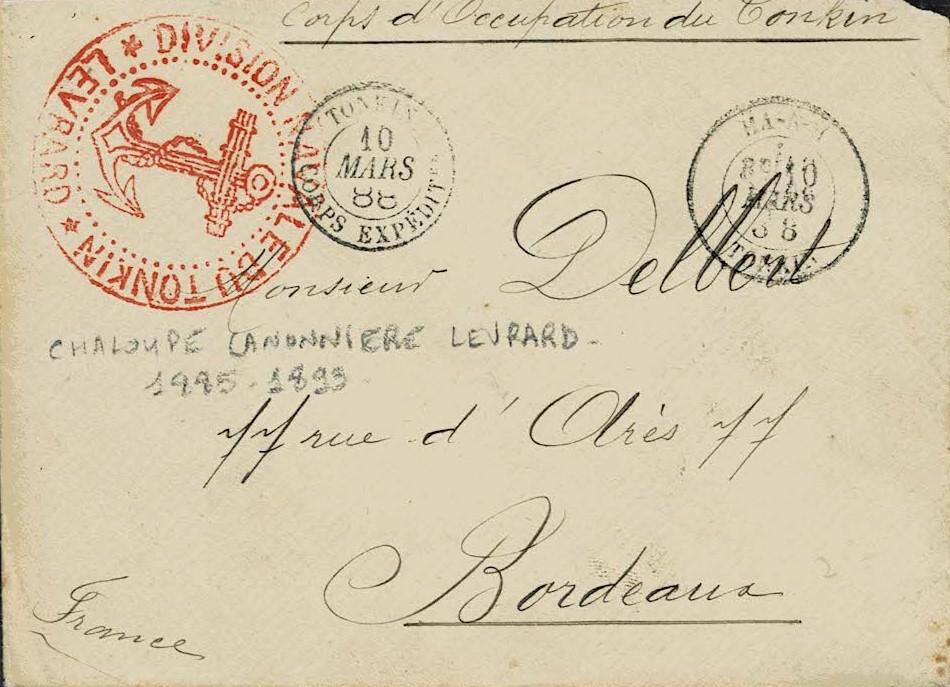 Corps d'Occupation du Tonkin
DIVISION NAVALE DU TONKIN * LEVRARD *
TONKIN
10
MARS
88
CORPS EXPEDIT
HA-N
10
MARS
88
TONKIN
Monsieur Delbert
CHALOUPE CANONNIERE LEVRARD -
1885 - 1893
77 rue d'Arès 77
Bordeaux
France